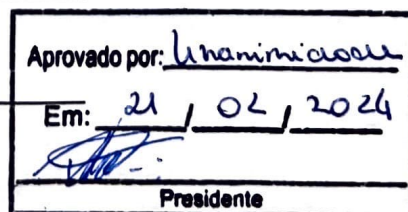 Aprovado por: Unanimidade
Em: 21 / 02 / 2024
Presidente